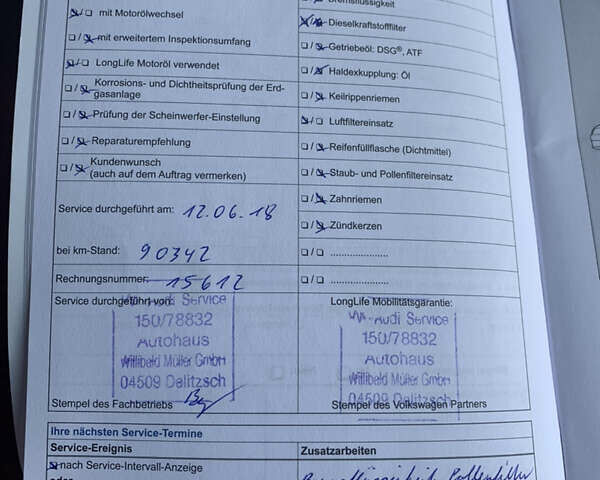 Bremsflüssigkeit
mit Motorölwechsel
Dieselkraftstofffilter
mit erweitertem Inspektionsumfang
Getriebeöl: DSG®, ATF
LongLife Motoröl verwendet
Haldexkupplung: Öl
Korrosions- und Dichtheitsprüfung der Erd-
gasanlage
Keilrippenriemen
Prüfung der Scheinwerfer-Einstellung
Luftfiltereinsatz
Reparaturempfehlung
Reifenfüllflasche (Dichtmittel)
Kundenwunsch
(auch auf dem Auftrag vermerken)
Staub- und Pollenfiltereinsatz
Zahnriemen
Service durchgeführt am: 12.06.18
Zündkerzen
bei km-Stand: 90342
....................
Rechnungsnummer: 15612
....................
Service durchgeführt von:
Audi Service
150/78832
Autohaus
Willibald Müller GmbH
04509 Delitzsch
Stempel des Fachbetriebs
LongLife Mobilitätsgarantie:
VW-Audi Service
150/78832
Autohaus
Willibald Müller GmbH
04509 Delitzsch
Stempel des Volkswagen Partners
Ihre nächsten Service-Termine
Service-Ereignis
Zusatzarbeiten
nach Service-Intervall-Anzeige
oder
Pollenfilter